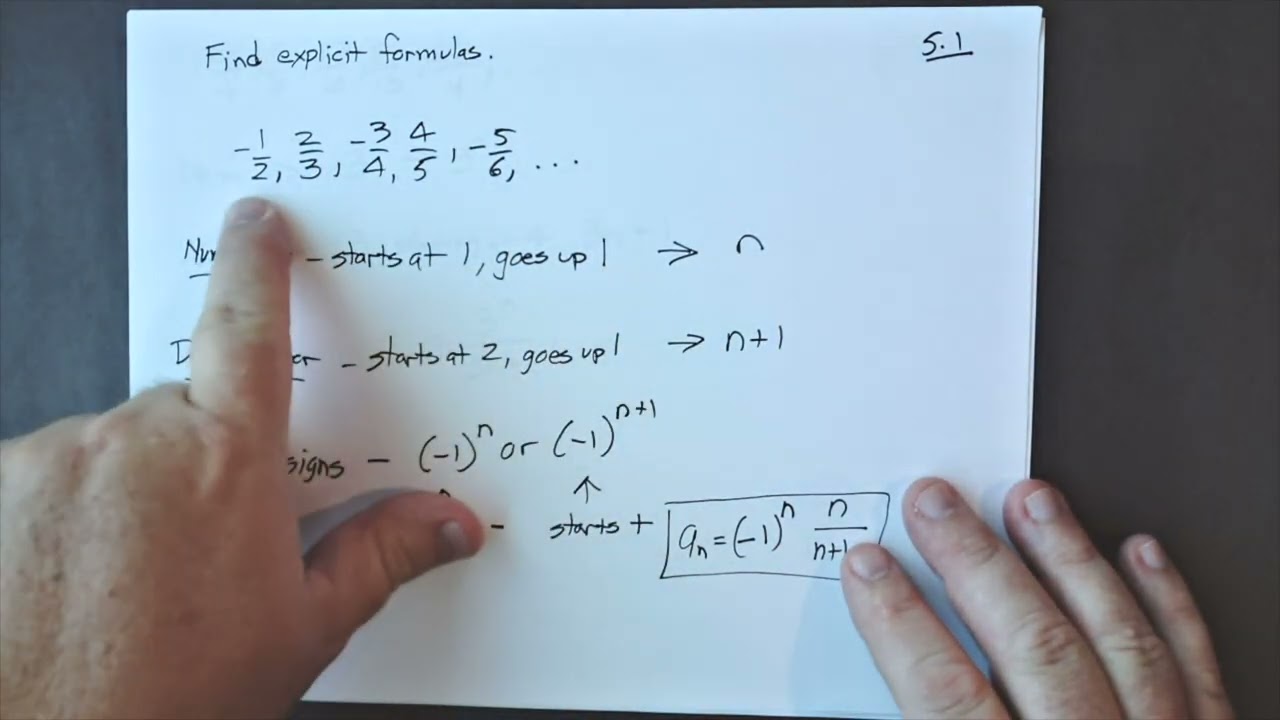 Find explicit formulas.
5.1
-1/2, 2/3, -3/4, 4/5, -5/6, ...
- starts at 1, goes up 1 → n
- starts at 2, goes up 1 → n+1
signs - (-1)^n or (-1)^(n+1)
↑
- starts +
a_n = (-1)^n n/(n+1)